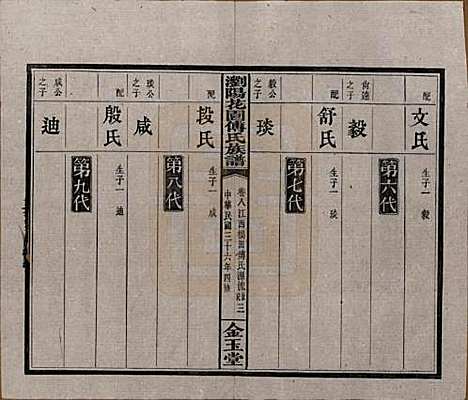 配 文氏 生子一毅
第六代
尙遠之子 毅
配 舒氏 生子一琰
第七代
毅公之子 琰
瀏陽花園傅氏族譜
卷八 江西
中華民國三十六年四修
金玉堂
配 段氏 生子一咸
第八代
琰公之子 咸
配 殷氏 生子一迪
第九代
咸公之子 迪